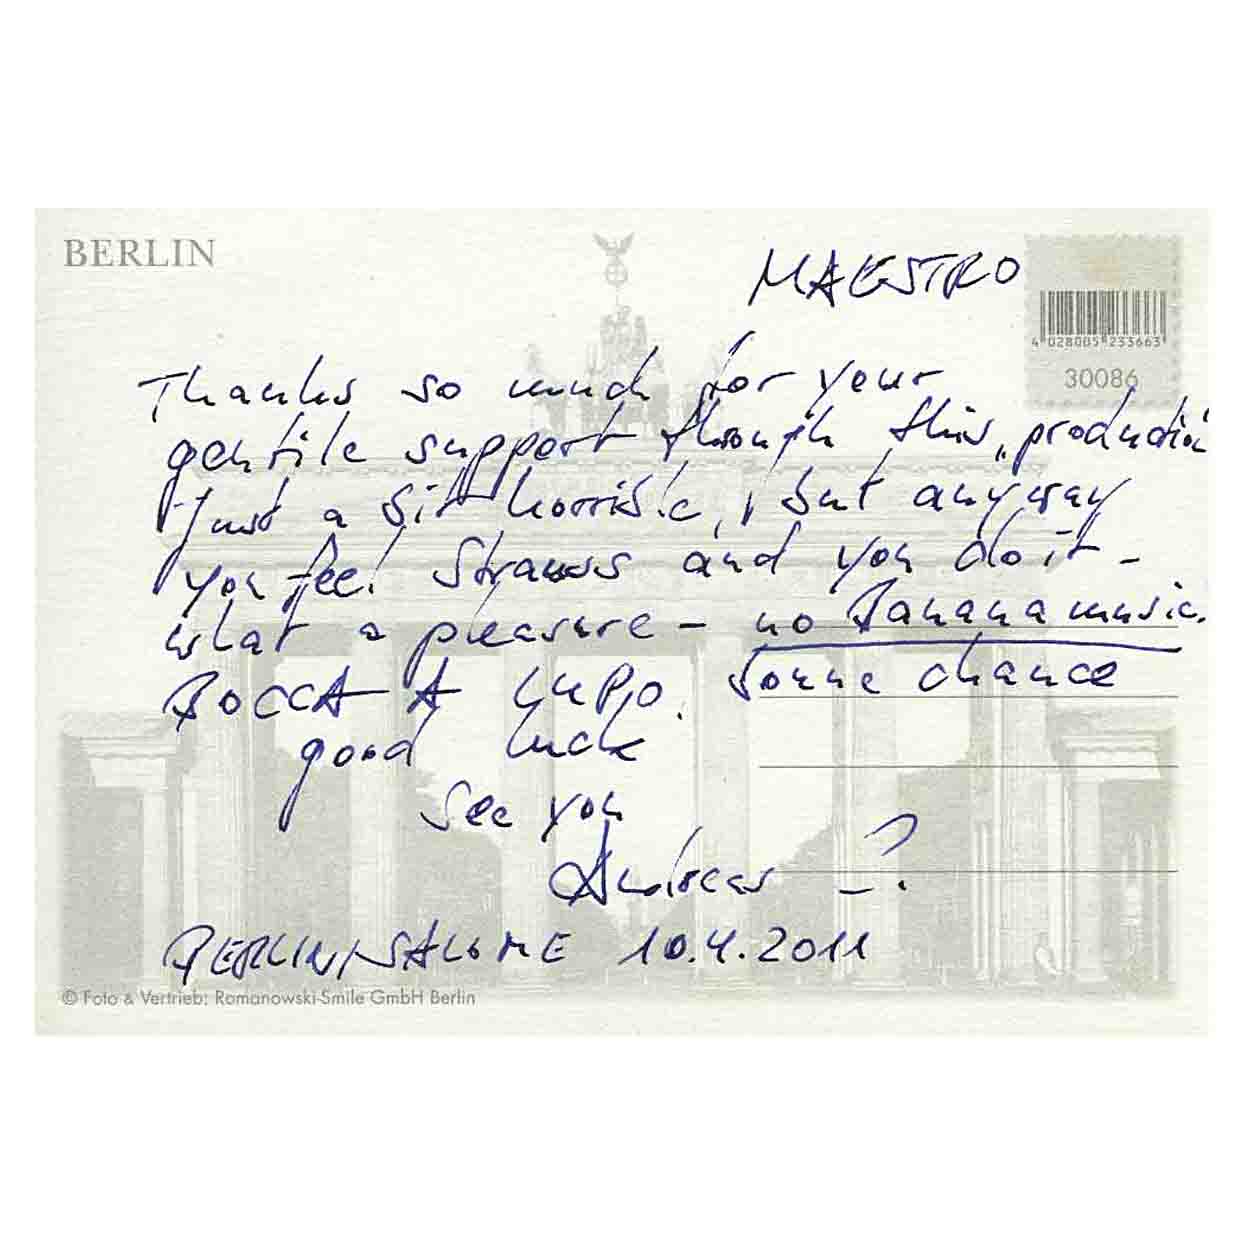 BERLIN
MAESTRO
4 028005 233663
30086
Thanks so much for your
gentile support through this „production
just a bit horrible, but anyway
you feel Strauss and you do it –
what a pleasure – no Banana music.
BOCCA A LUPO. bonne chance
good luck
see you
Andreas – ?
BERLIN/SALOME 10.4.2011
© Foto & Vertrieb: Romanowski-Smile GmbH Berlin